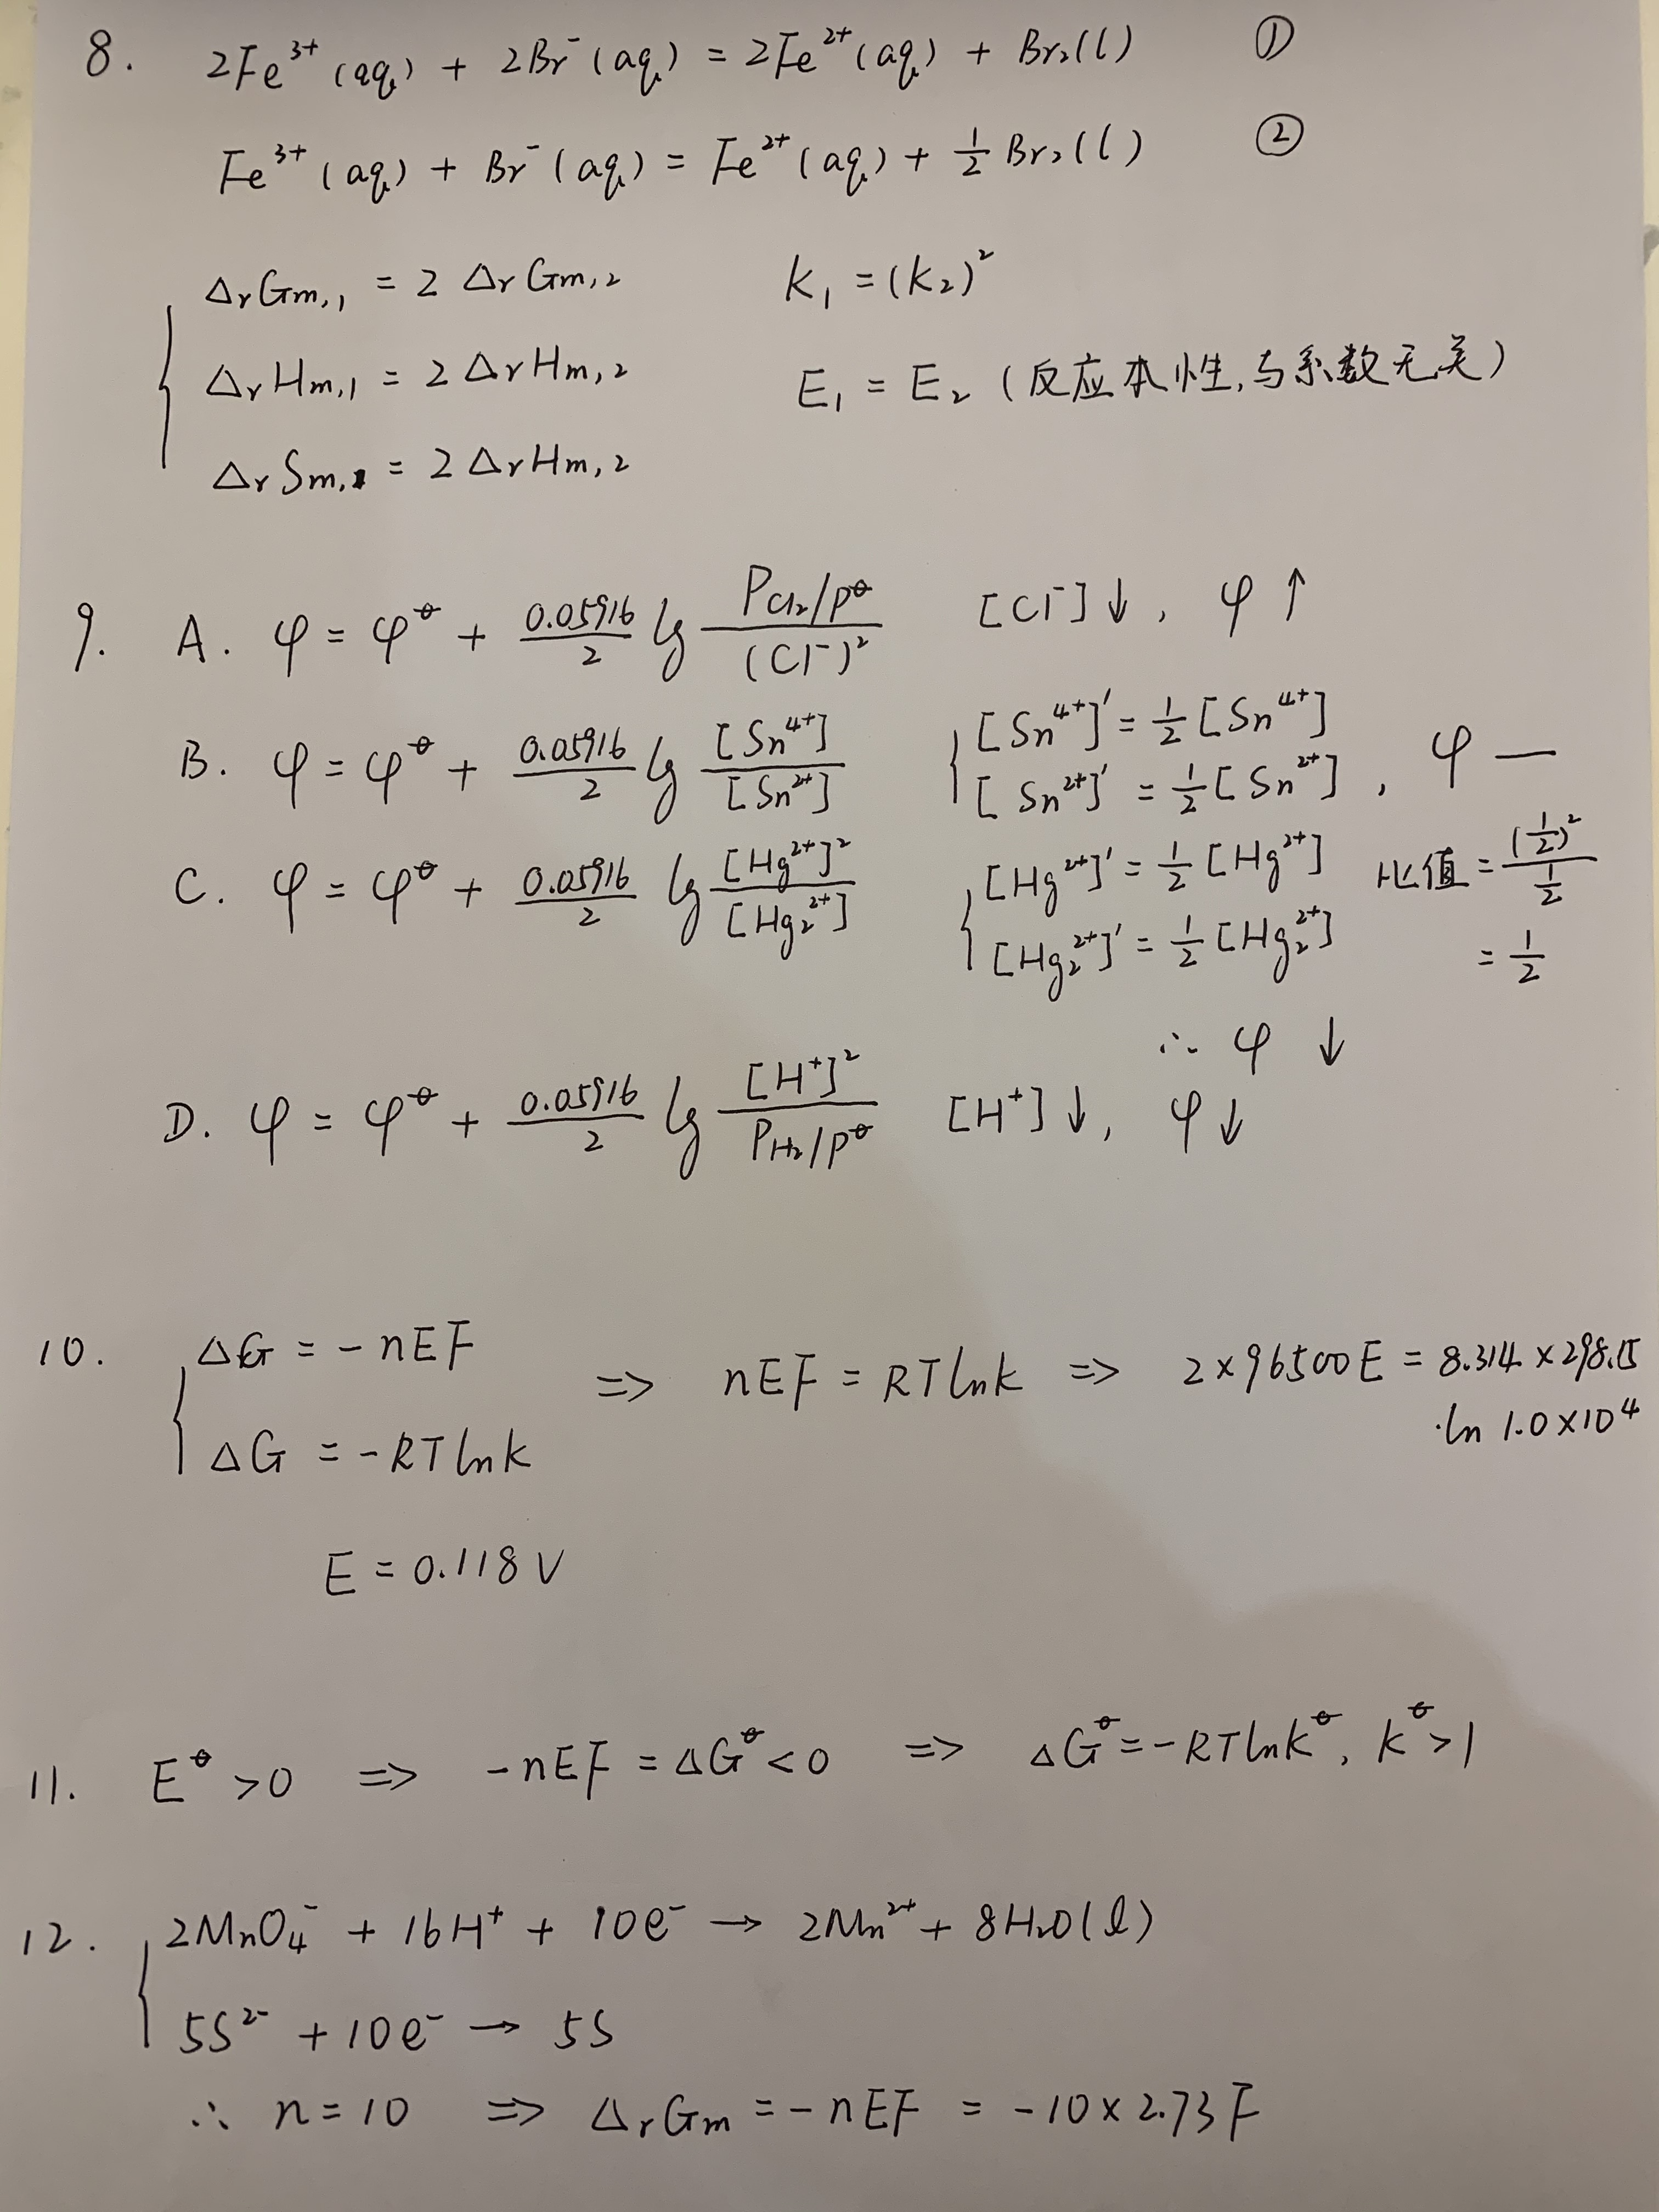 8. 2Fe³⁺(aq) + 2Br⁻(aq) = 2Fe²⁺(aq) + Br₂(l) ①
Fe³⁺(aq) + Br⁻(aq) = Fe²⁺(aq) + 1/2 Br₂(l) ②
ΔrGm,1 = 2ΔrGm,2 K₁ = (K₂)²
ΔrHm,1 = 2ΔrHm,2 E₁ = E₂ (反应本性,与系数无关)
ΔrSm,1 = 2ΔrHm,2
9. A. φ = φ^θ + 0.05916/2 lg (P_Cl₂/p^θ)/(Cl⁻)² [Cl⁻]↓, φ↑
B. φ = φ^θ + 0.05916/2 lg [Sn⁴⁺]/[Sn²⁺] { [Sn⁴⁺]' = 1/2 [Sn⁴⁺]
[Sn²⁺]' = 1/2 [Sn²⁺], φ —
C. φ = φ^θ + 0.05916/2 lg [Hg²⁺]²/[Hg₂²⁺] { [Hg²⁺]' = 1/2 [Hg²⁺] 比值 = (1/2)²/(1/2)
[Hg₂²⁺]' = 1/2 [Hg₂²⁺] = 1/2
∴ φ ↓
D. φ = φ^θ + 0.05916/2 lg [H⁺]²/(P_H₂/p^θ) [H⁺]↓, φ↓
10. { ΔG = -nEF
ΔG = -RTlnk ⇒ nEF = RTlnk ⇒ 2×96500E = 8.314×298.15
·ln 1.0×10⁴
E = 0.118 V
11. E^θ >0 ⇒ -nEF = ΔG^θ<0 ⇒ ΔG^θ = -RTlnk^θ, k^θ>1
12. { 2MnO₄⁻ + 16H⁺ + 10e⁻ → 2Mn²⁺ + 8H₂O(l)
5S²⁻ + 10e⁻ → 5S
∴ n=10 ⇒ ΔrGm = -nEF = -10×2.73F